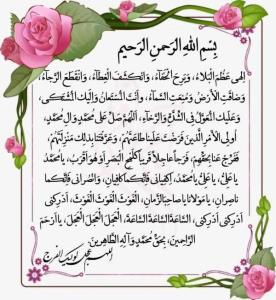 بِسْمِ اللهِ الرَّحمنِ الرَّحیمِ
اِلهی عَظُمَ الْبَلاءُ، وَبَرِحَ الْخَفاءُ، وَانْکَشَفَ الْغِطاءُ، وَانْقَطَعَ الرَّجاءُ،
وَضاقَتِ الْاَرْضُ وَمُنِعَتِ السَّماءُ، وَاَنْتَ الْمُسْتَعانُ وَاِلَیْکَ الْمُشْتَکی،
وَعَلَیْکَ الْمُعَوَّلُ فِی الشِّدَّةِ وَالرَّخاءِ، اَللّهُمَّ صَلِّ عَلی مُحَمَّدٍ وَآلِ مُحَمَّدٍ،
اُولِی الْاَمْرِ الَّذینَ فَرَضْتَ عَلَیْنا طاعَتَهُمْ، وَعَرَّفْتَنا بِذلِکَ مَنْزِلَتَهُمْ،
فَفَرِّجْ عَنّا بِحَقِّهِمْ، فَرَجاً عاجِلاً قَریباً کَلَمْحِ الْبَصَرِ اَوْ هُوَ اَقْرَبُ، یا مُحَمَّدُ
یا عَلِیُّ، یا عَلِیُّ یا مُحَمَّدُ، اِکْفِیانی فَاِنَّکُما کافِیانِ، وَانْصُرانی فَاِنَّکُما
ناصِرانِ، یا مَوْلانا یا صاحِبَ الزَّمانِ، الْغَوْثَ، الْغَوْثَ، الْغَوْثَ،
اَدْرِکْنی، اَدْرِکْنی، اَدْرِکْنی، السّاعَةَ، السّاعَةَ، السّاعَةَ، الْعَجَلَ، الْعَجَلَ، الْعَجَلَ، یا اَرْحَمَ
الرّاحِمینَ، بِحَقِّ مُحَمَّدٍ وَآلِهِ الطّاهِرینَ.
اللهم عجل لولیک الفرج